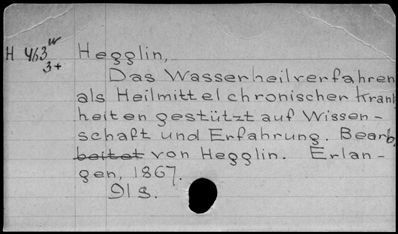 H 463 w Hegglin,
3+
Das Wasserheilverfahren
als Heilmittel chronischer Krank
heiten gestützt auf Wissen-
schaft und Erfahrung. Bearb,
beitet von Hegglin. Erlan-
gen, 1867.
91 S.